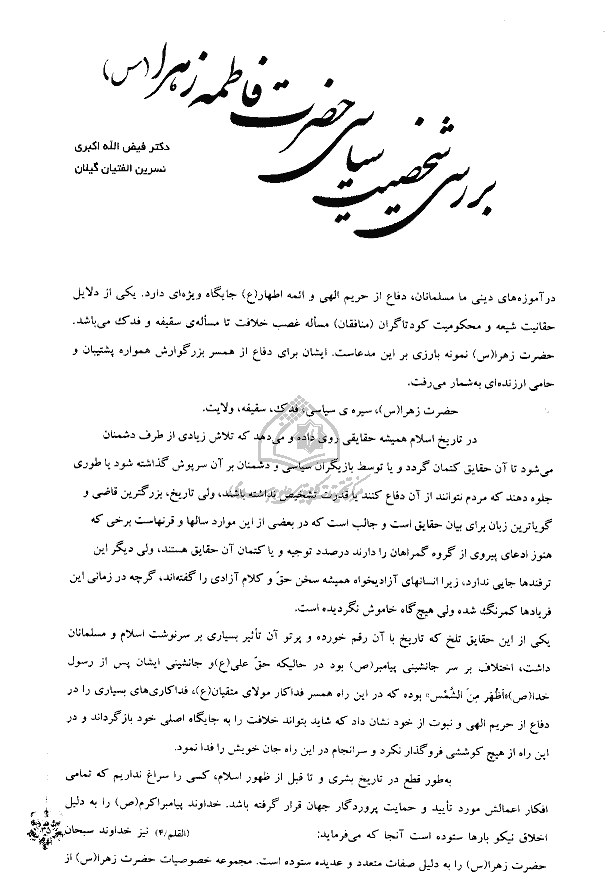 بررسی شخصیت سیاسی حضرت فاطمه زهرا (س)
دکتر فیض الله اکبری
نسرین الفتیان گیلان
در آموزه‌های دینی ما مسلمانان، دفاع از حریم الهی و ائمه اطهار(ع) جایگاه ویژه‌ای دارد. یکی از دلایل
حقانیت شیعه و محکومیت کودتاگران (منافقان) مسأله غصب خلافت تا مسأله‌ی سقیفه و فدک می‌باشد.
حضرت زهرا(س) نمونه بارزی بر این مدعاست. ایشان برای دفاع از همسر بزرگوارش همواره پشتیبان و
حامی ارزنده‌ای به‌شمار می‌رفت.
حضرت زهرا(س)، سیره ی سیاسی، فدک، سقیفه، ولایت.
در تاریخ اسلام همیشه حقایقی روی داده و می‌دهد که تلاش زیادی از طرف دشمنان
می‌شود تا آن حقایق کتمان گردد و یا توسط بازیگران سیاسی و دشمنان بر آن سرپوش گذاشته شود یا طوری
جلوه دهند که مردم نتوانند از آن دفاع کنند یا قدرت تشخیص نداشته باشند، ولی تاریخ، بزرگترین قاضی و
گویاترین زبان برای بیان حقایق است و جالب است که در بعضی از این موارد سالها و قرنهاست برخی که
هنوز ادعای پیروی از گروه گمراهان را دارند درصدد توجیه و یا کتمان آن حقایق هستند، ولی دیگر این
ترفندها جایی ندارد، زیرا انسانهای آزادیخواه همیشه سخن حقّ و کلام آزادی را گفته‌اند، گرچه در زمانی این
فریادها کمرنگ شده ولی هیچ‌گاه خاموش نگردیده است.
یکی از این حقایق تلخ که تاریخ با آن رقم خورده و پرتو آن تأثیر بسیاری بر سرنوشت اسلام و مسلمانان
داشت، اختلاف بر سر جانشینی پیامبر(ص) بود در حالیکه حقّ علی(ع)و جانشینی ایشان پس از رسول
خدا(ص)«اَظْهَر مِنَ الشَّمْس» بوده که در این راه همسر فداکار مولای متقیان(ع)، فداکاری‌های بسیاری را در
دفاع از حریم الهی و نبوت از خود نشان داد که شاید بتواند خلافت را به جایگاه اصلی خود بازگرداند و در
این راه از هیچ کوششی فروگذار نکرد و سرانجام در این راه جان خویش را فدا نمود.
به‌طور قطع در تاریخ بشری و تا قبل از ظهور اسلام، کسی را سراغ نداریم که تمامی
افکار اعمالش مورد تأیید و حمایت پروردگار جهان قرار گرفته باشد. خداوند پیامبراکرم(ص) را به دلیل
اخلاق نیکو بارها ستوده است آنجا که می‌فرماید: (القلم/۴) نیز خداوند سبحان
حضرت زهرا(س) را به دلیلی صفات متعدد و عدیده ستوده است. مجموعه خصوصیات حضرت زهرا(س) از